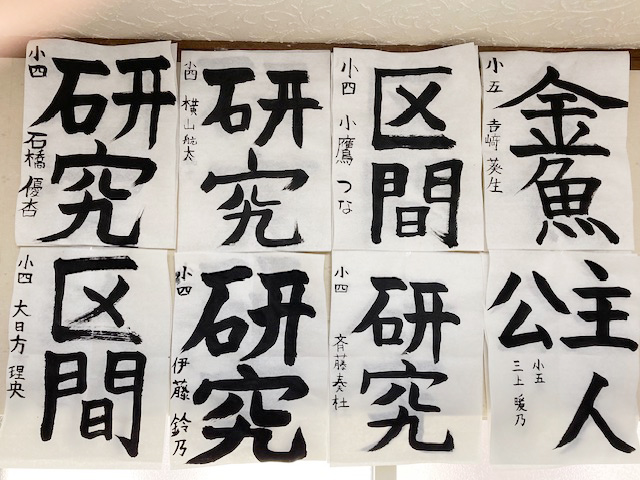 研究
小四 石橋優杏
研究
小四 横山航太
区間
小四 小鷹つな
金魚
小五 吉﨑葵生
区間
小四 大日方理央
研究
小四 伊藤鈴乃
研究
小四 斉藤奏杜
主人公
小五 三上暖乃